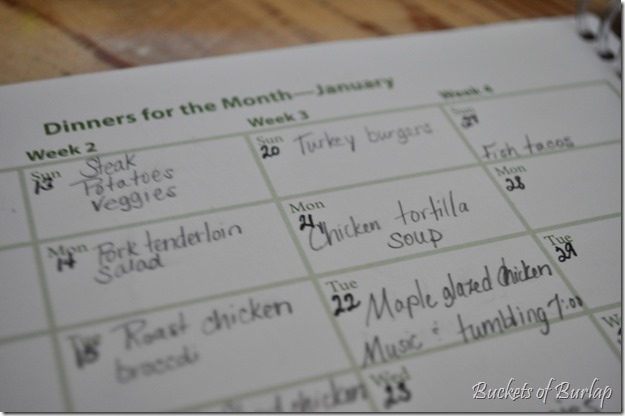 Dinners for the Month—January
Week 2
Week 3
Week 4
Sun
13
Steak
Potatoes
Veggies
Sun
20
Turkey burgers
Sun
27
Fish tacos
Mon
14
Pork tenderloin
Salad
Mon
21
Chicken tortilla
soup
Mon
28
Tue
15
Roast chicken
broccoli
Tue
22
Maple glazed chicken
Music & tumbling 7:00
Tue
29
chicken
Wed
23
Buckets of Burlap